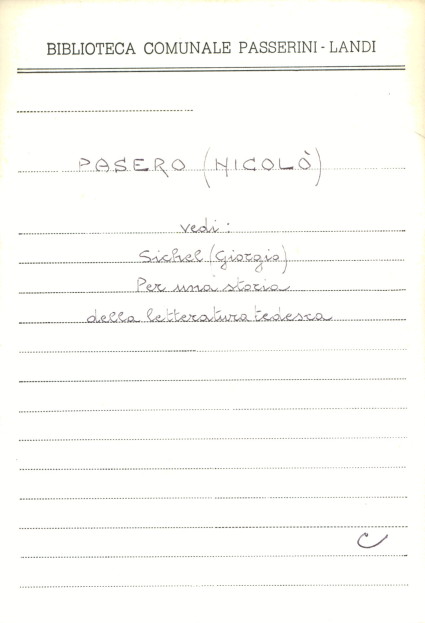 BIBLIOTECA COMUNALE PASSERINI-LANDI
PASERO (NICOLÒ)
vedi:
Sichel (Giorgio)
Per una storia
della letteratura tedesca
C